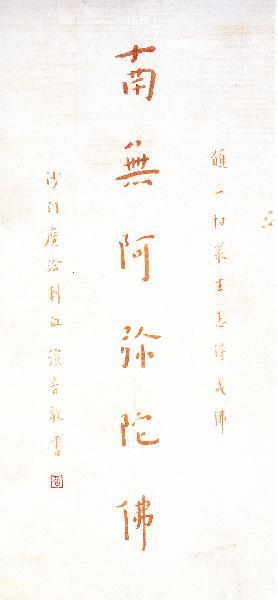 願一切衆生悉得成佛
南無阿弥陀佛
沙门廣洽刺血 演音敬書